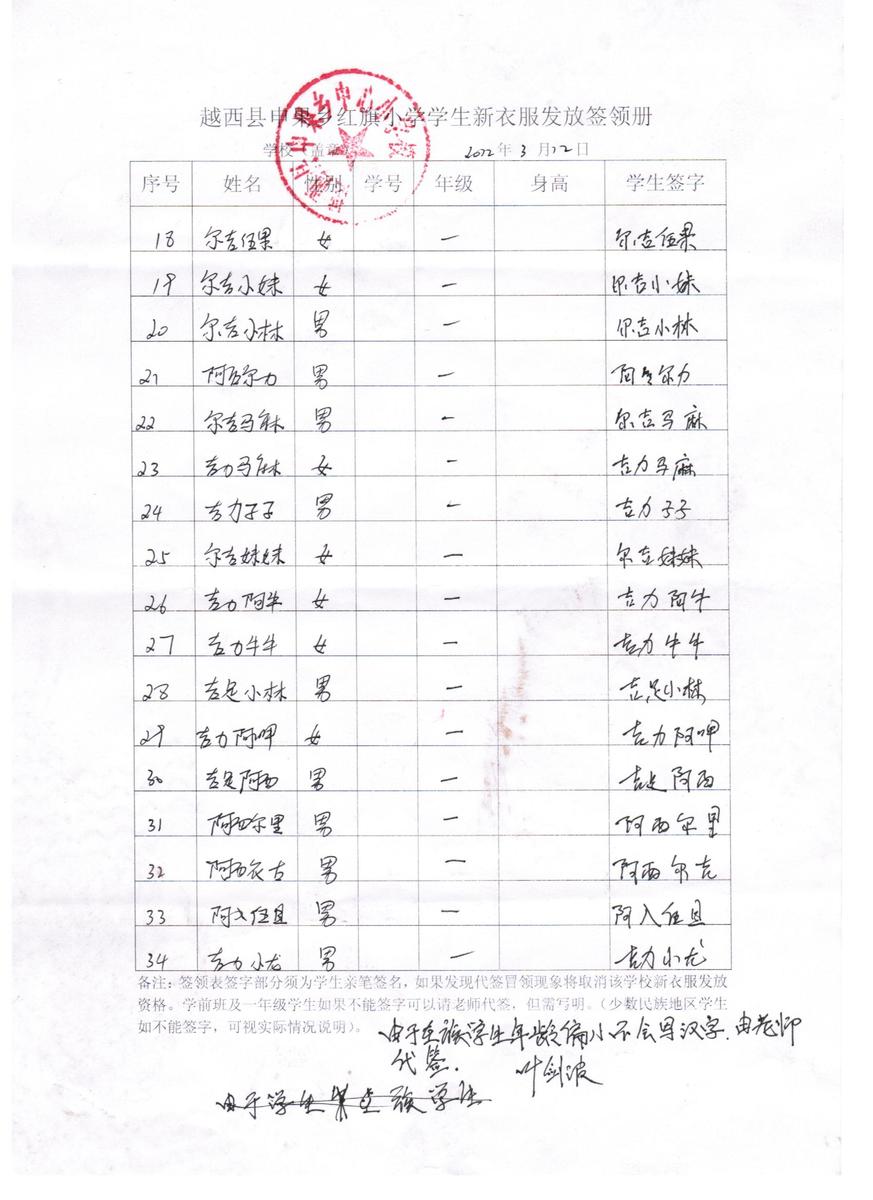 越西县申果乡红旗小学学生新衣服发放签领册
学校（盖章） 2012年3月12日
序号 姓名 性别 学号 年级 身高 学生签字
18 尔吉伍果 女 一 尔吉伍果
19 尔吉小妹 女 一 尔吉小妹
20 尔吉小林 男 一 尔吉小林
21 阿尔力 男 一 阿尔力
22 尔吉马麻 男 一 尔吉马麻
23 吉力马麻 女 一 吉力马麻
24 吉力子子 男 一 吉力子子
25 尔吉妹妹 女 一 尔吉妹妹
26 吉力阿牛 女 一 吉力阿牛
27 吉力牛牛 女 一 吉力牛牛
28 吉足小林 男 一 吉足小林
29 吉力阿呷 女 一 吉力阿呷
30 吉足阿西 男 一 吉足阿西
31 阿西尔里 男 一 阿西尔里
32 阿西 男 一 阿西尔
33 阿入伍且 男 一 阿入伍且
34 吉力小龙 男 一 吉力小龙
备注：签领表签字部分须为学生亲笔签名，如果发现代签冒领现象将取消该学校新衣服发放
资格。学前班及一年级学生如果不能签字可以请老师代签，但需写明。（少数民族地区学生
如不能签字，可视实际情况说明）。
由于全族学生年龄偏小不会写汉字.由老师
代签. 叶剑波
由于学生 族学生